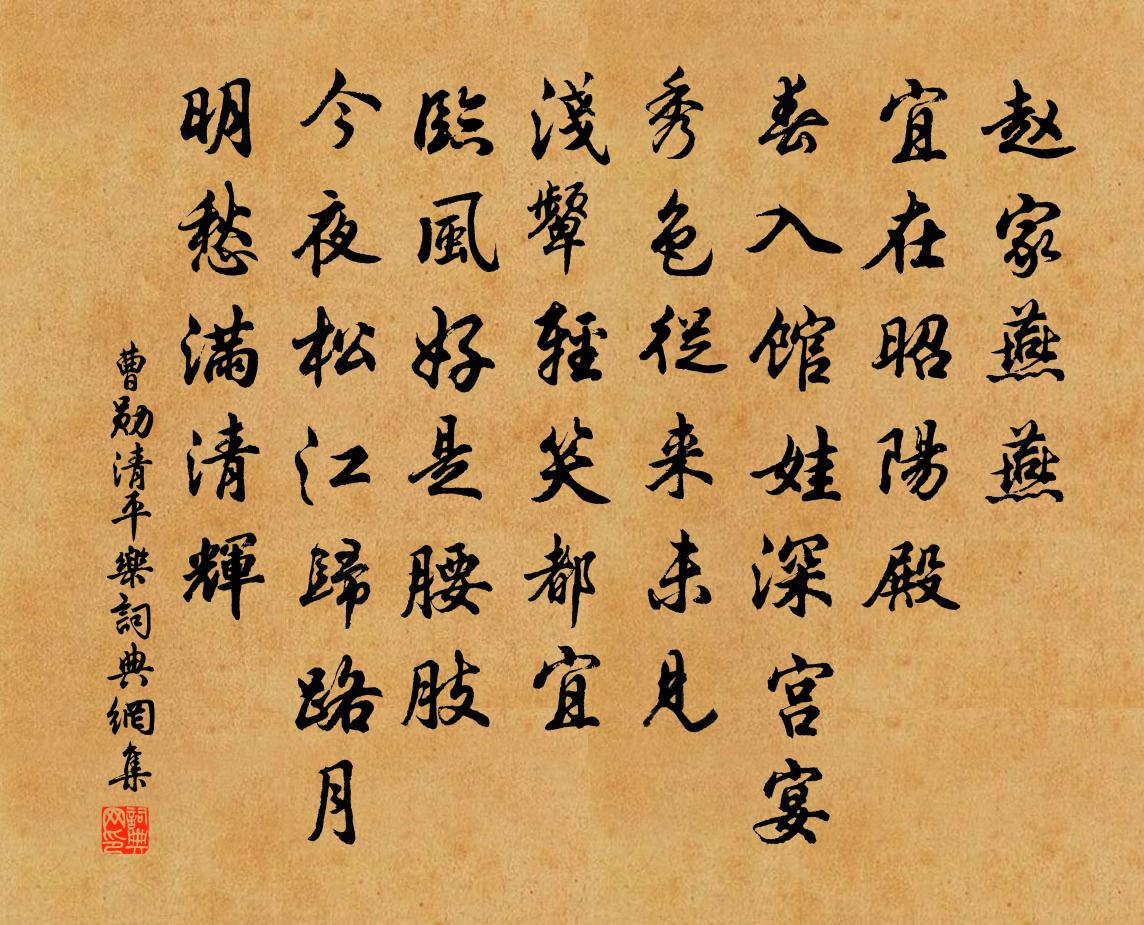 赵家燕燕
宜在昭陽殿
春入馆娃深宫宴
秀色從来未見
淺顰輕笑都宜
臨風好是腰肢
今夜松江歸路月
明愁满清輝
曹勛清平樂詞典網集
詞典网印